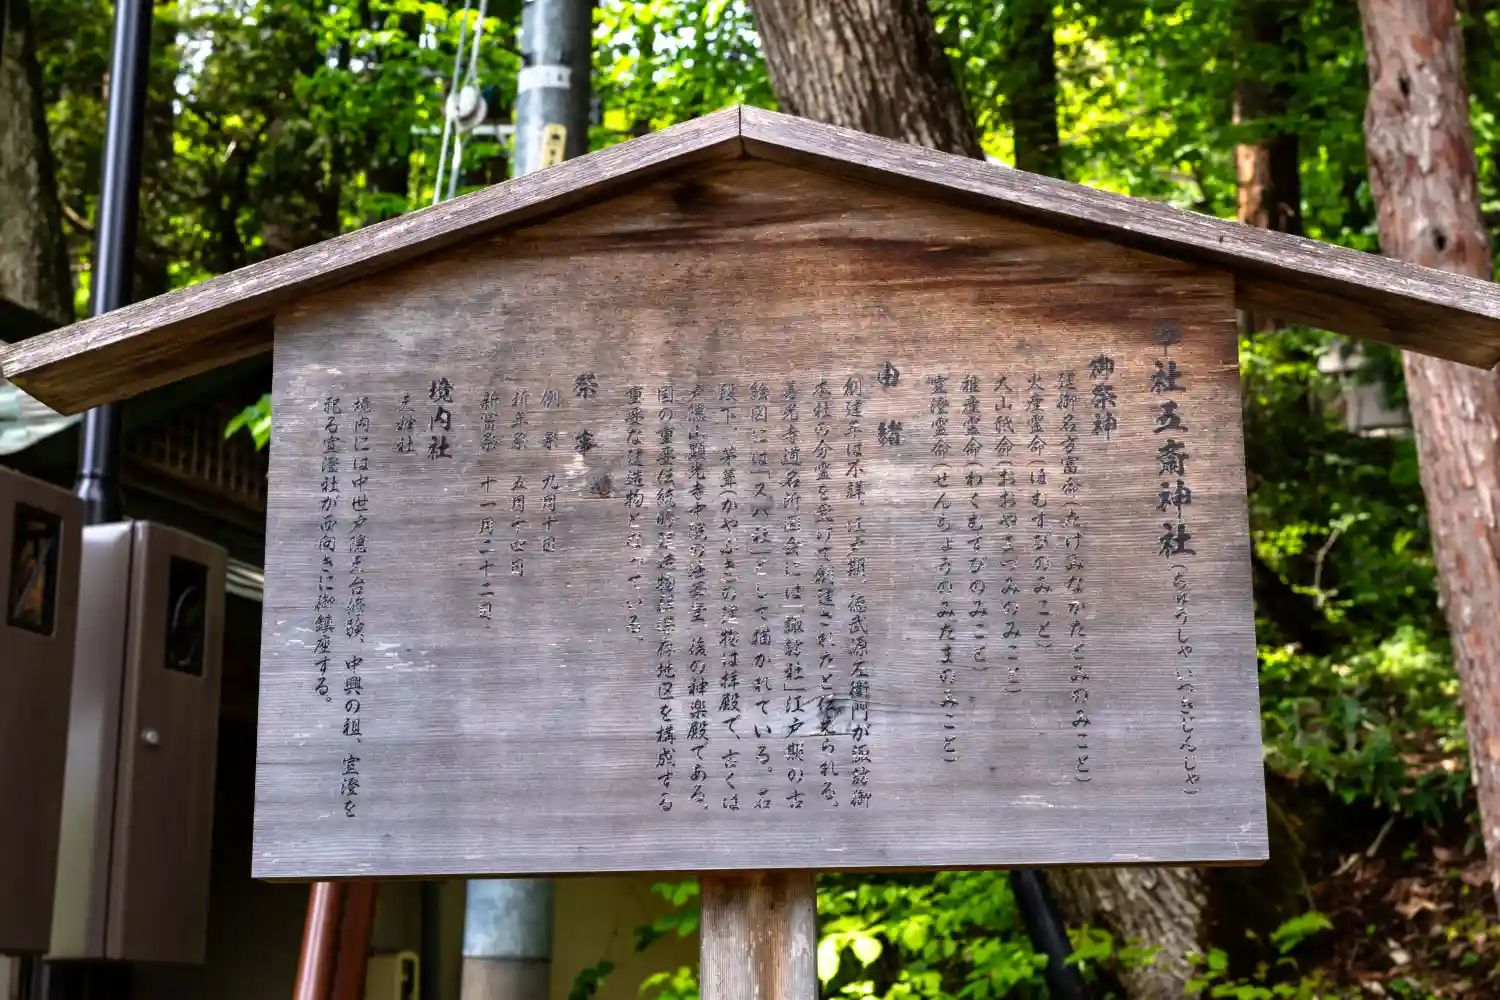 中社 五斎神社(ちゅうしゃ いつきじんじゃ)
御祭神
建御名方富命(たけみなかたとみのみこと)
火産霊命(ほむすびのみこと)
大山祇命(おおやまつみのみこと)
稚産霊命(わくむすびのみこと)
宣澄霊命(せんちょうのみたまのみこと)
由緒
創建年は不詳。江戸期、徳武源左衛門が諏訪御
本社の分霊を戴いて創建されたと伝えられる。
善光寺道名所図会には「諏訪社」江戸期が古
絵図には「スハ社」として描かれている。石
段下、茅葺(かやぶき)の建物は拝殿で、古くは
戸隠山顕光寺中院の 後の神楽殿である。
国の重要伝統的建造物群保存地区を構成する
重要な建造物となっている。
祭事
例祭 九月十日
祈年祭 五月十四日
新嘗祭 十一月二十二日
境内社
天神社
境内には中世戸隠天台修験、中興の祖、宣澄を
祀る宣澄社が西向きに御鎮座する。